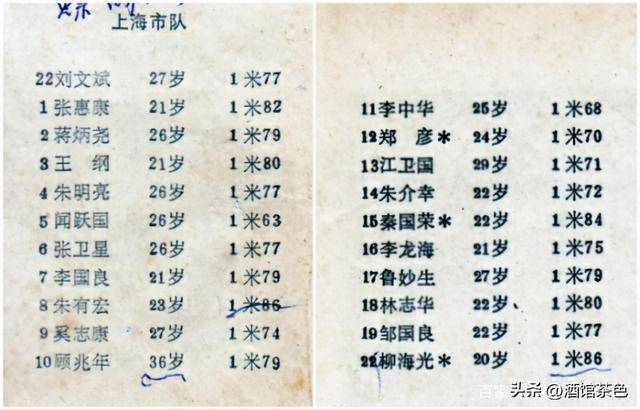 上海市队
22刘文斌 27岁 1米77
1张惠康 21岁 1米82
2蒋炳尧 26岁 1米79
3王 纲 21岁 1米80
4朱明亮 26岁 1米77
5闻跃国 26岁 1米63
6张卫星 26岁 1米77
7李国良 21岁 1米79
8朱有宏 23岁 1米86
9奚志康 27岁 1米74
10顾兆年 36岁 1米79
11李中华 25岁 1米68
12郑 彦* 24岁 1米70
13江卫国 29岁 1米71
14朱介幸 22岁 1米72
15秦国荣* 22岁 1米84
16李龙海 21岁 1米75
17鲁妙生 27岁 1米79
18林志华 22岁 1米80
19邹国良 22岁 1米77
22柳海光* 20岁 1米86
头条 @酒馆茶色